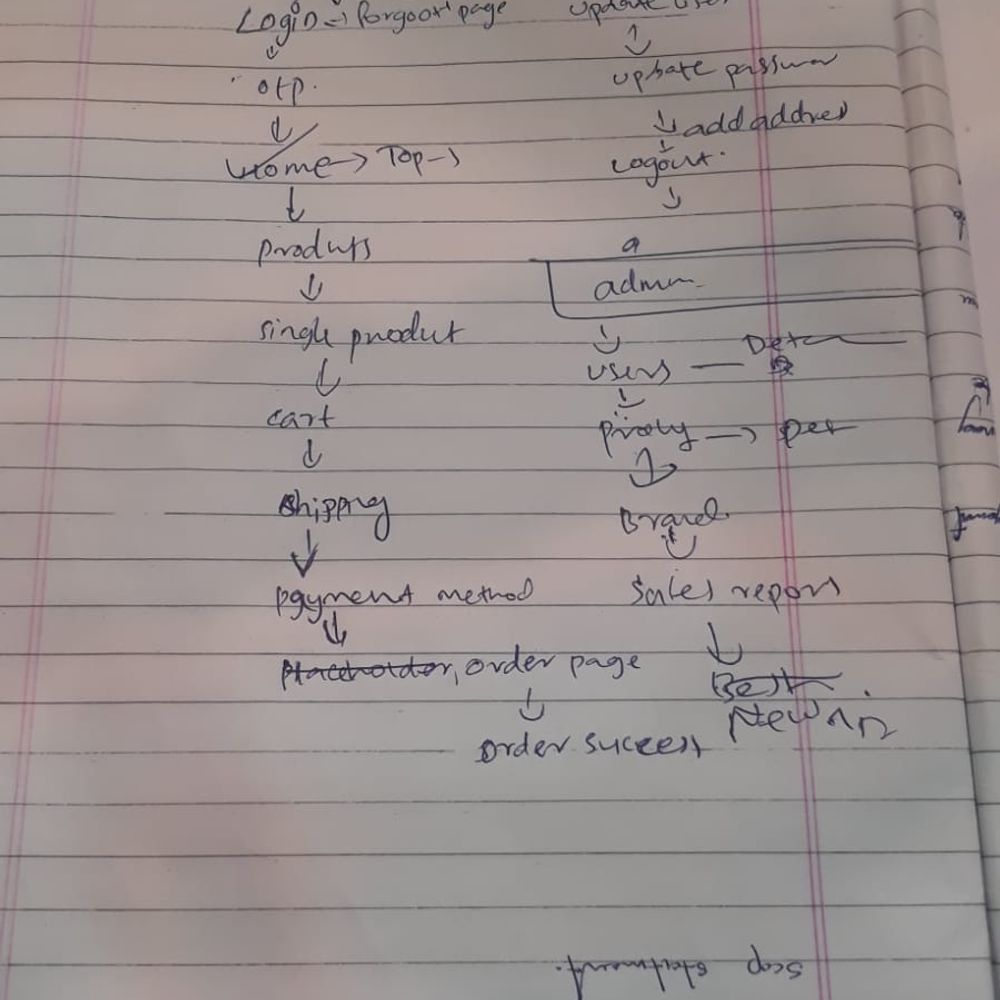 Login → forgoot page
otp.
Home → Top →
products
single product
cart
shipping
payment method
placeholder, order page
order success
update user
update passwor
add addres
Logout.
a
admin
users — Det
→ Det
Brand
Sales report
Best
New
scop statment.